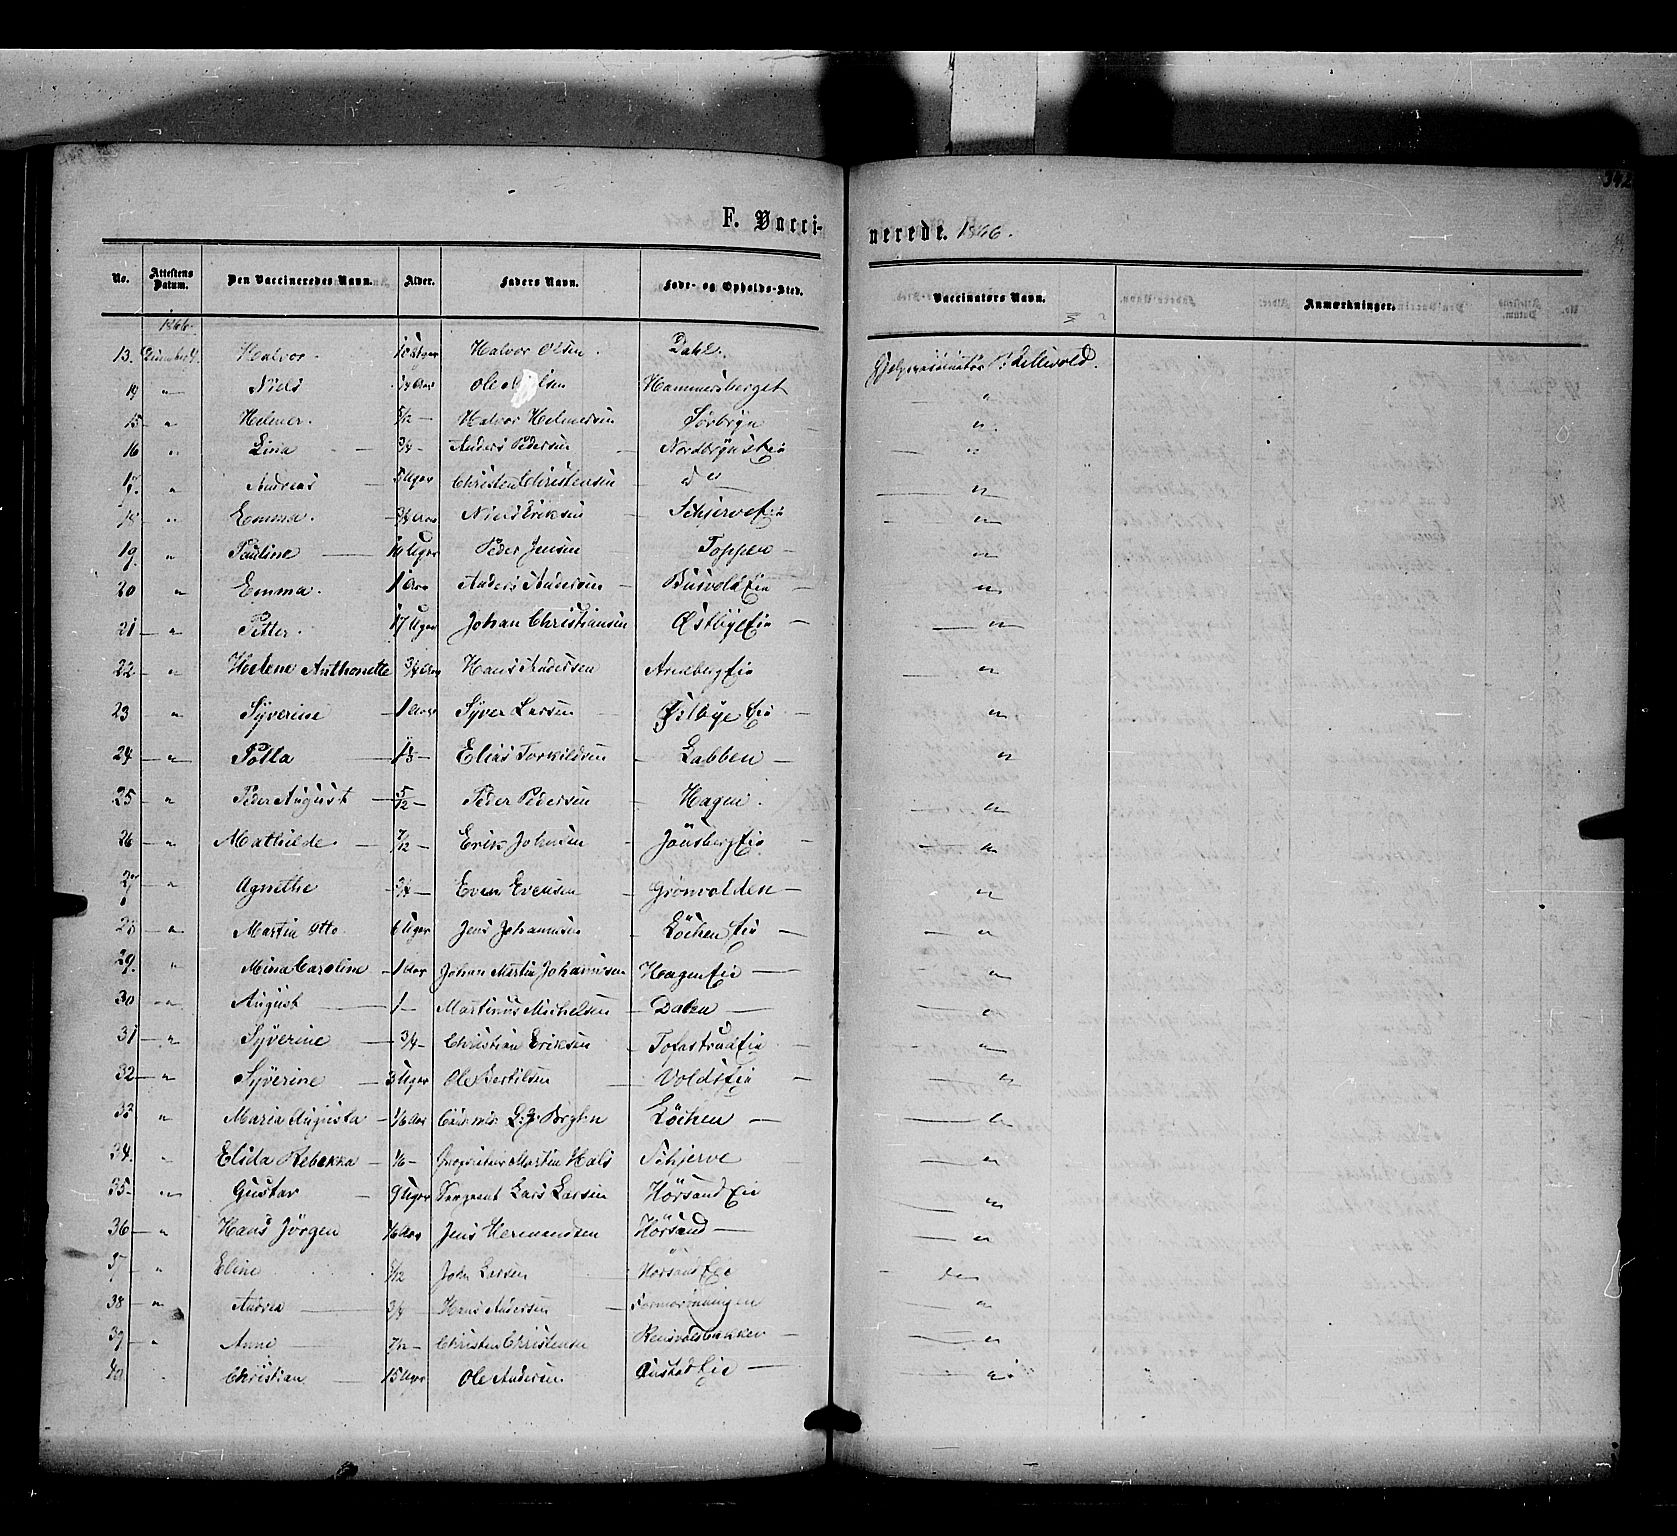 342
F. Vacci- nerede. 1866.
No. Attestens Datum. Den Vaccineredes Navn. Alder. Faders Navn. Føde- og Opholds-Sted. Vaccinators Navn. Anmærkninger.
1866.
13. Halvor. 10 Uger Halvor Olsen. Dahl.
14 " Niels 1/4 Aar Ole Nielsen Hammersberget "
15 - " Helmer. 5/12 - Halvor Helmersen Sørbyen "
16 " Lina - 3/4 - Anders Pedersen - Nordbyenseie "
17. " Andreas - 5 Uger Christen Christensen do "
18 " Emma. - 3/4 Aar Niels Eriksen - Schjerveeie "
19. " Pauline - 14 Uger Peder Jensen Toppen - "
20 " Emma. 1 Aar Anders Andersen - Busvold Eie "
21 - " Petter. 17 Uger Johan Christiansen Østbye Eie - "
22 - " Helene Anthonette 3/4 Aar Hans Andersen Arneberg Eie "
23 " Syverine - 1 Aar Syver Larsen Østbye Eie - "
24 - " Potla - 1/3 - Elias Torkildsen - Labben - "
25 " Peder August - 5/12 - Peder Pedersen - Hagen. "
26 - " Mathilde. - 7/12 - Erik Johnsen - Jønsberg Eie "
27 - " Agnethe - 3/4 - Even Evensen - Grønvolden - "
28 - " Martin Otto 6 Uger Jens Johannesen Løchen Eie - "
29. " Mina Caroline - 1 Aar Johan Martin Johannesen Hagen Eie - "
30 - " August - 1 - Martinus Michelsen - Dalen - "
31 - " Syverine - 3/4 - Christian Eriksen - Tofastrud Eie - "
32 - " Syverine - 3 Uger Ole Bertilsen - Volds Eie - "
33 " Maria Augusta - 1/6 Aar Løchen - "
34. " Elida Rebekka - 1/6 - Proprietær Martin Hals Schjerve "
35. - " Gustav 9 Uger Sergeant Lars Larsen Hørsand Eie "
36 - " Hans Jørgen 1/6 Aar Jens Hermandsen Hørsand - "
37 - " Eline 5/12 John Larsen - Hørsand Eie "
38 - " Andrea - 3/4 - Hans Andersen - "
39 - " Anne - 7/12 - Christen Christensen "
40 Christian - 15 Uger Ole Andersen Onstad Eie - " "